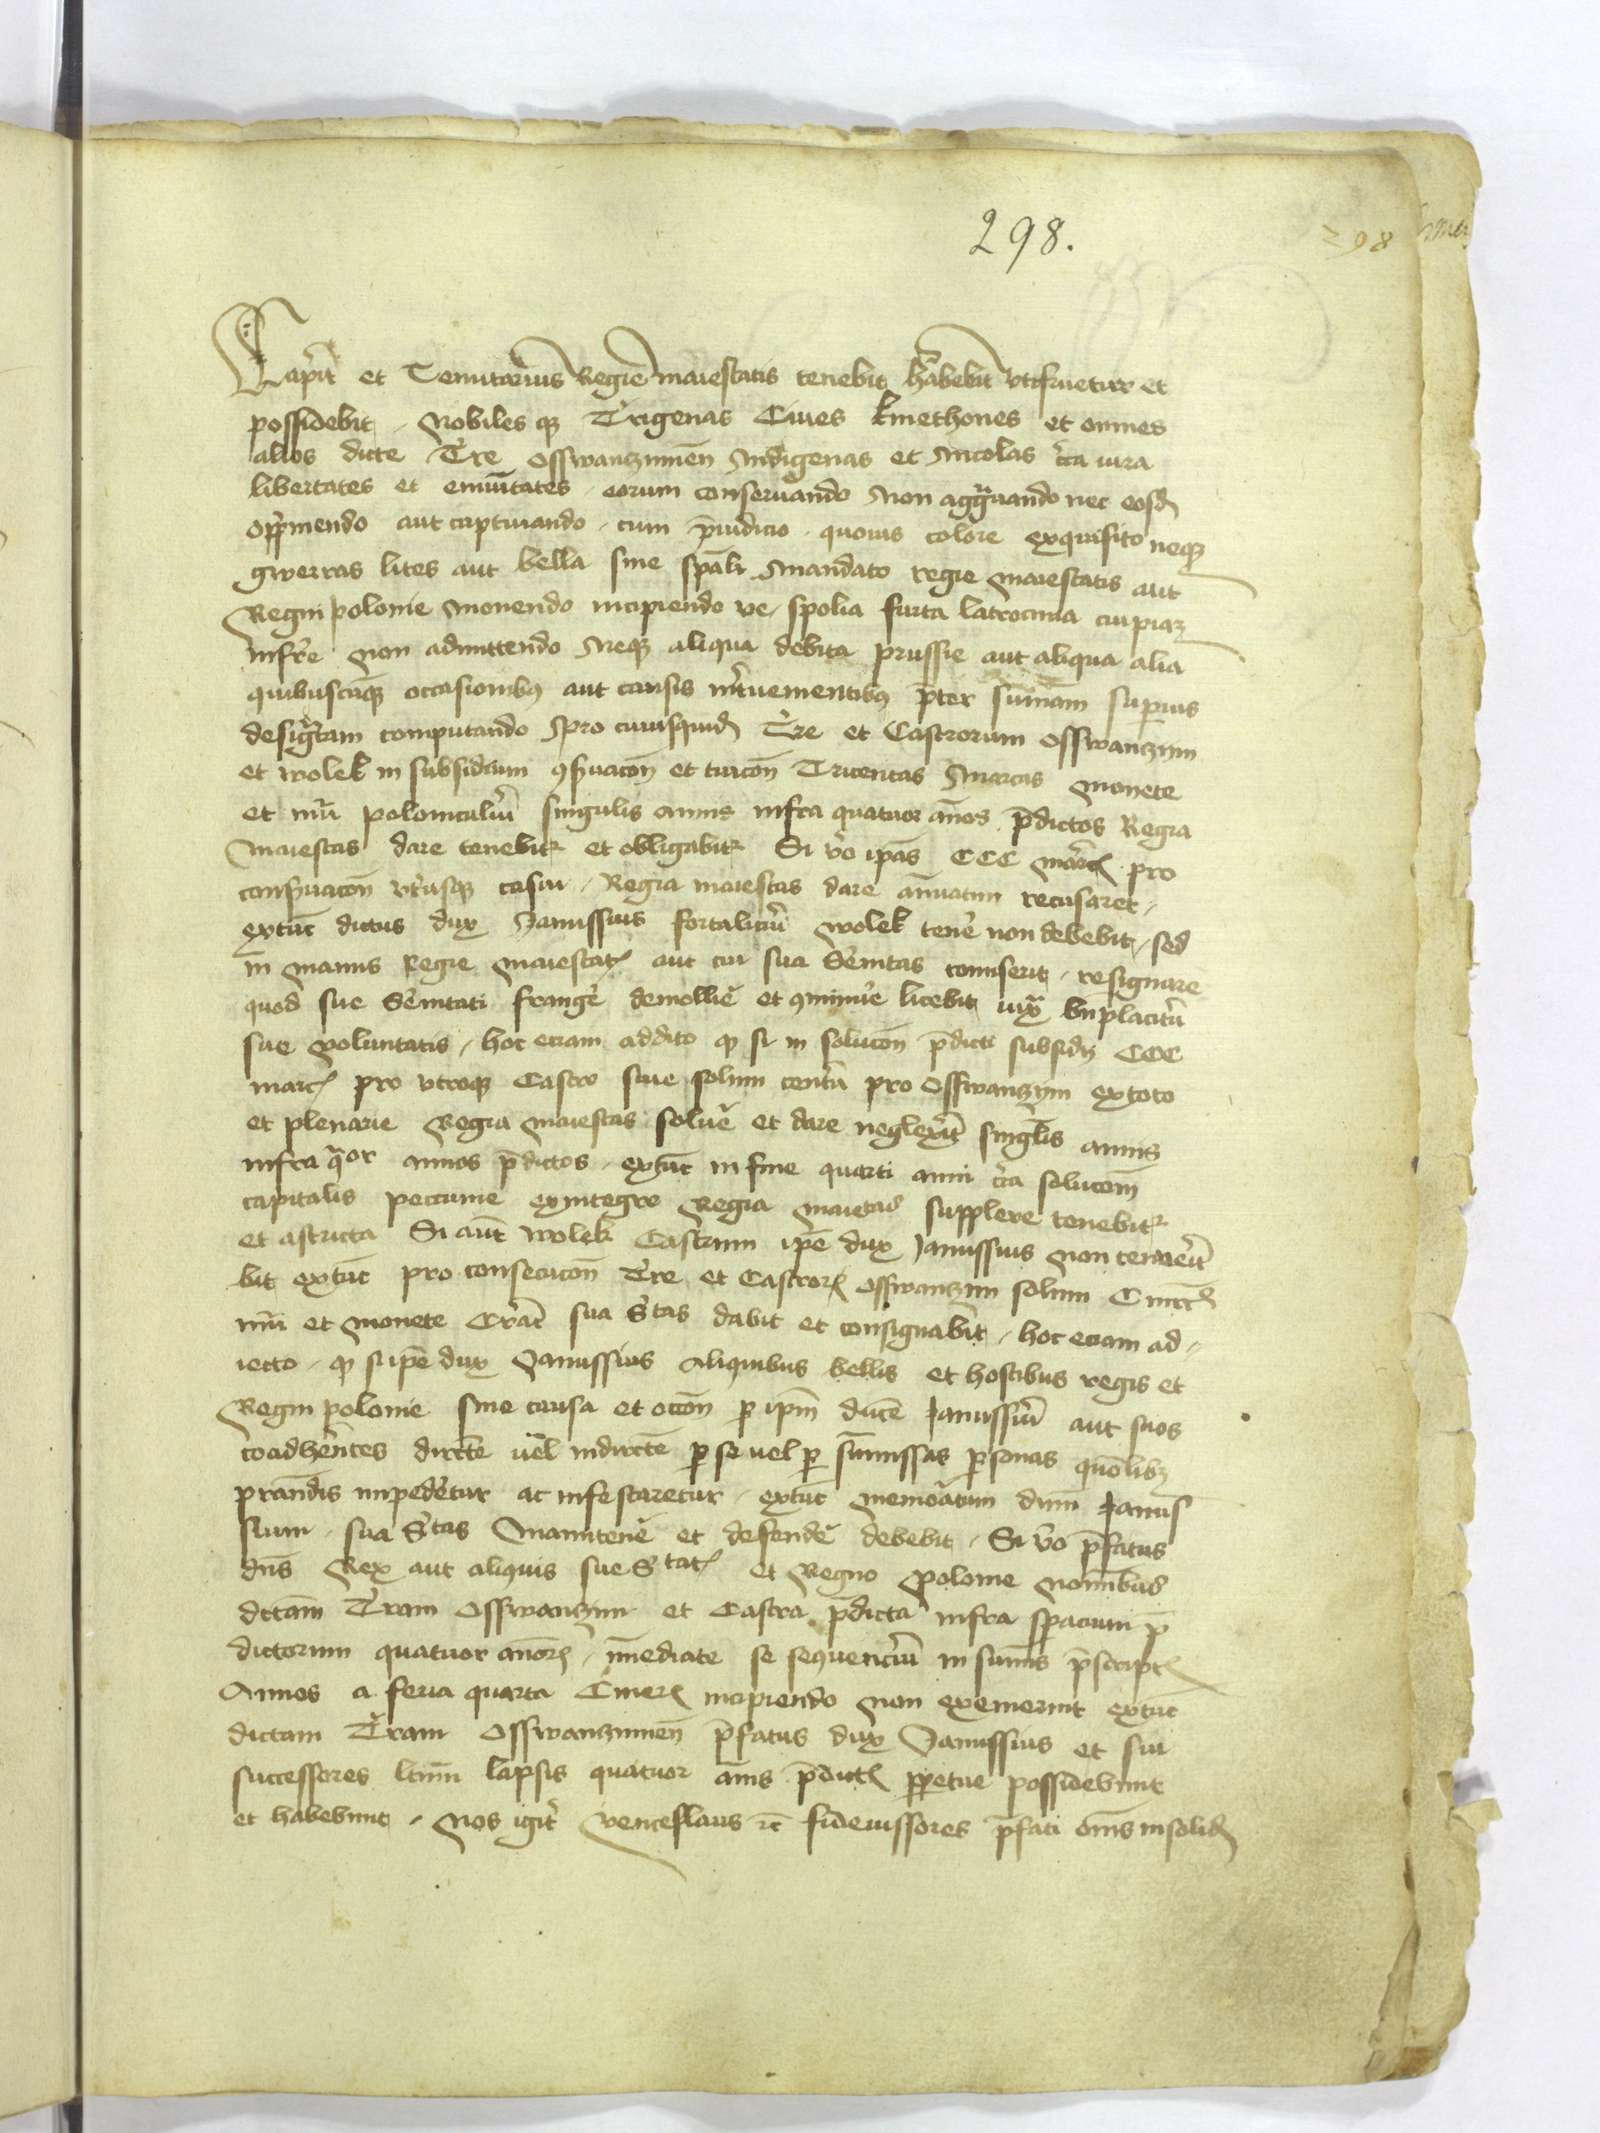 298.
298
Capit et Tenutarius Regie maiestatis tenebit habebit utifruetur et
possidebit, Nobiles q Trigenas Ciues kmethones et omnes
alios dicte Tre Osswanczimen Indigenas et Incolas circa iura
libertates et emunitates eorum conseruando Non aggrauando nec eosd
opprimendo aut captiuando cum preiudicio quouis colore exquisito neq
gwerras lites aut bella sine spali Mandato regie Maiestatis aut
Regni polonie Mouendo incipiendo ve spolia furta latrocinia cuipiam
inferre Non admittendo Neq aliqua debita prussie aut aliqua alia
quibuscunq occasionibus aut causis interuenientibus preter summam superius
designatam computando Pro cuiusquid Tre et Castrorum Osswanczim
et wolek in subsidium conseruacon et tuicon Tricentas Marcas Monete
et numi polonicalium singulis annis infra quatuor annos predictos Regia
Maiestas dare tenebitur et obligabitur Si vero ipas CCC marc pro
conseruacon utriusq castri, Regia maiestas dare annuatim recusaret,
extunc dictus dux Janussius fortalicium wolek tenere non debebit, sed
in manus Regie Maiestat aut cui sua Serenitas comiserit, resignare
quod sue Serenitati frangere demollire et comminuere licebit iuxta bnplacitum
sue voluntatis, hoc eciam addito q si in solucon predicti subsidy CCC
marc pro utroq Castro siue solum centum pro Osswanczym extoto
et plenarie Regia Maiestas soluere et dare neglexerit singulis annis
infra quatuor annos predictos, extunc in fine quarti anni circa solucom
capitalis peccunie exintegro Regia Maiestas supplere tenebitur
et astricta Si aut wolek Castrum ipe dux Janussius Non tenuerit
bit extunc pro consecucon Tre et Castror Osswanczim solum C marc
numi et Monete sua Stas dabit et consignabit, hoc eciam ad,,
iecto, q si ipe dux Janussius aliquibus bellis et hostibus regis et
Regni polonie sine causa et occon p ipm ducem Janussium aut suos
coadherentes directe uel indirecte p se uel p summissas personas quomolibet
prandis impedetur ac infestaretur, extunc memoratum dum Janus
sium, sua Stas Manutenere et defendere debebit, Si vero prefatus
dns Rex aut aliquis sue Stat et Regno Polonie Nominibus
dictam Tram Osswanczim et Castra predicta infra spacium pre
dictorum quatuor annor, immediate se sequencium in summis prescript
Annos a feria quarta Ciner incipiendo non exemerint extunc
dictam Tram Osswanczimen prefatus dux Janussius et sui
successores ltimi lapsis quatuor annis predict perpetue possidebunt
et habebunt, Nos igitur Venceslaus etc fideiussores prefati omes insolid